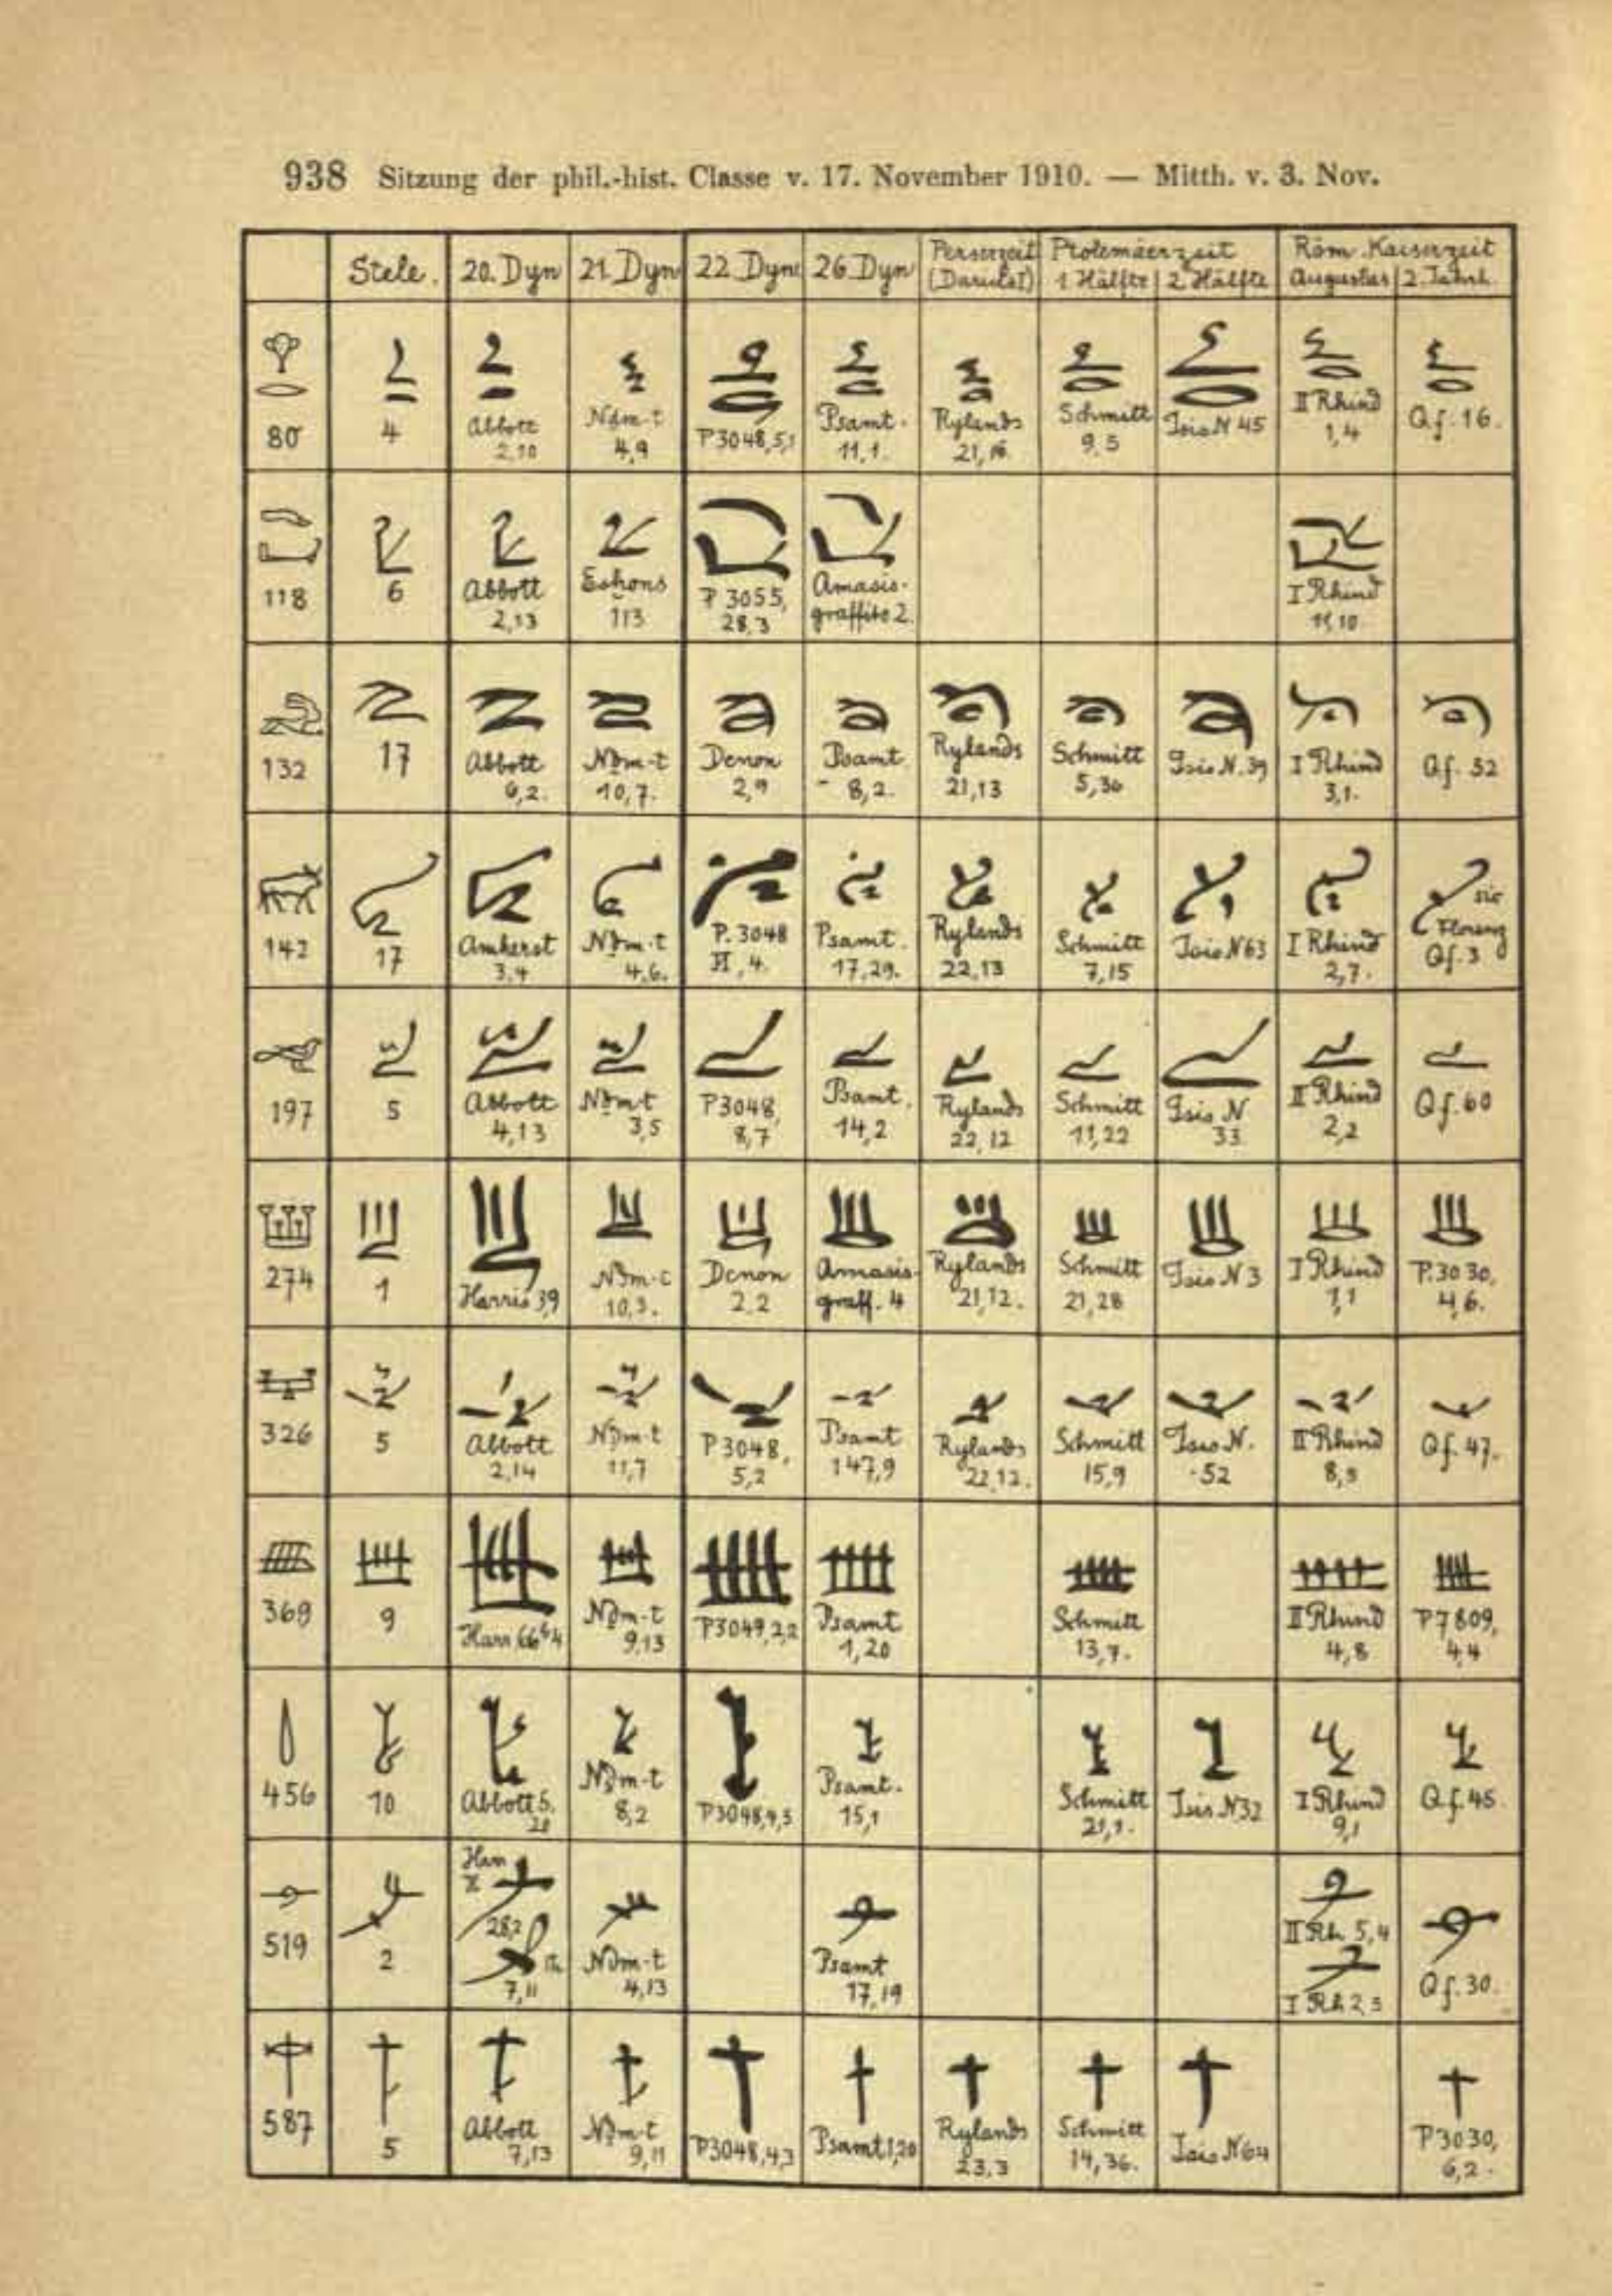 938 Sitzung der phil.-hist. Classe v. 17. November 1910. — Mitth. v. 3. Nov.
Stele. 20. Dyn 21. Dyn 22 Dyn 26 Dyn Perserzeit (Darius I) Ptolemäerzeit 1 Hälfte 2 Hälfte Röm. Kaiserzeit Augustus 2. Jahrh.
80 4 Abbott 2,10 Nḏm-t 4,9 P3048,5,1 Psamt. 11,1. Rylands 21,16. Schmitt 9,5 Isis N 45 II Rhind 1,4 Qf. 16.
118 6 Abbott 2,13 113 P 3055, 28,3 Amasis-graffito 2. I Rhind 11,10
132 17 Abbott 6,2. Nḏm-t 10,7. Denon 2,9 Psamt 8,2. Rylands 21,13 Schmitt 5,36 Isis N. 39 I Rhind 3,1. Qf. 52
142 17 Amherst 3,4 Nḏm-t 4,6. P. 3048 II, 4. Psamt. 17,29. Rylands 22,13 Schmitt 7,15 Isis N 63 I Rhind 2,7. sic Florenz Qf. 3
197 5 Abbott 4,13 Nḏm-t 3,5 P3048, 8,7 Psamt. 14,2 Rylands 22,12 Schmitt 11,22 Isis N 33 II Rhind 2,2 Qf. 60
274 1 Harris 3,9 Nḏm-t 10,3. Denon 2,2 Amasis-graff. 4 Rylands 21,12. Schmitt 21,28 Isis N 3 I Rhind 1,1 P. 3030, 4,6.
326 5 Abbott 2,14 Nḏm-t 11,7 P3048, 5,2 Psamt 147,9 Rylands 22,12. Schmitt 15,9 Isis N. 52 II Rhind 8,3 Qf. 47.
369 9 Nḏm-t 9,13 P3049,2,2 Psamt 1,20 Schmitt 13,7. II Rhind 4,8 P7809, 4,4
456 10 Abbott 5, 21 Nḏm-t 8,2 P3048,9,3 Psamt. 15,1 Schmitt 21,1. Isis N 32 I Rhind 9,1 Qf. 45
519 2 Harr 28,2 7,11 Nḏm-t 4,13 Psamt 17,19 II Rh 5,4 I Rh 2,3 Qf. 30.
587 5 Abbott 7,13 Nḏm-t 9,11 P3048,4,3 Psamt 1,20 Rylands 23,3 Schmitt 14,36. Isis N 64 P3030, 6,2.